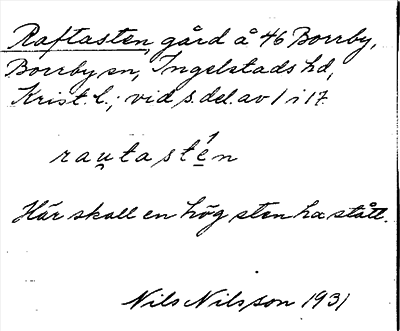 Raftasten, gård å 46 Borrby,
Borrby sn, Ingelstads hd,
Krist. l.; vid s. del. av 1 i 17.
rau̯tasté̱n
Här skall en hög sten ha stått.
Nils Nilsson 1931